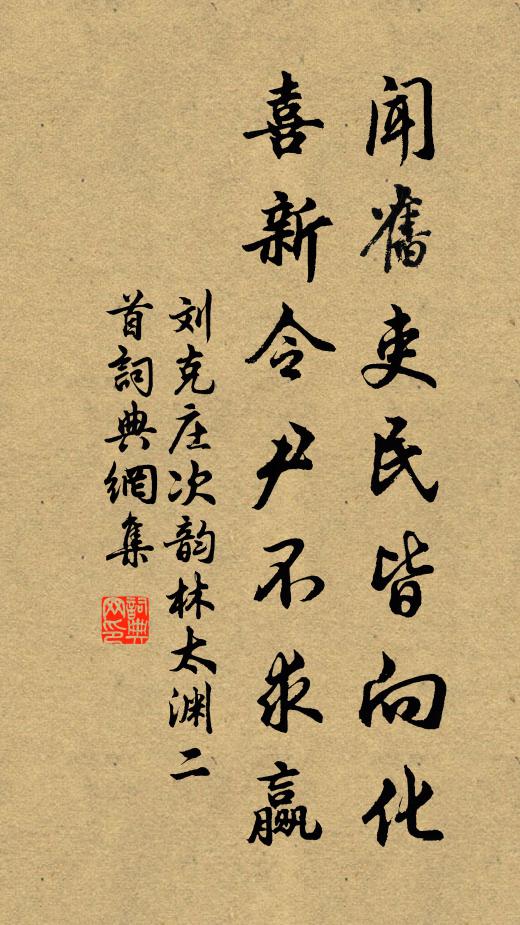 闻舊吏民皆向化
喜新令尹不求贏
刘克庄次韵林太渊二
首詞典網集
詞典网印